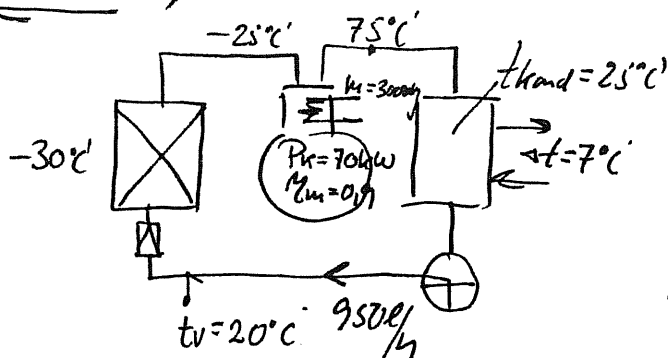 -25°C
75°C
tkond = 25°C
-30°C
Pk = 70kW
ηm = 0,9
Δt = 7°C
tv = 20°C
950l/h